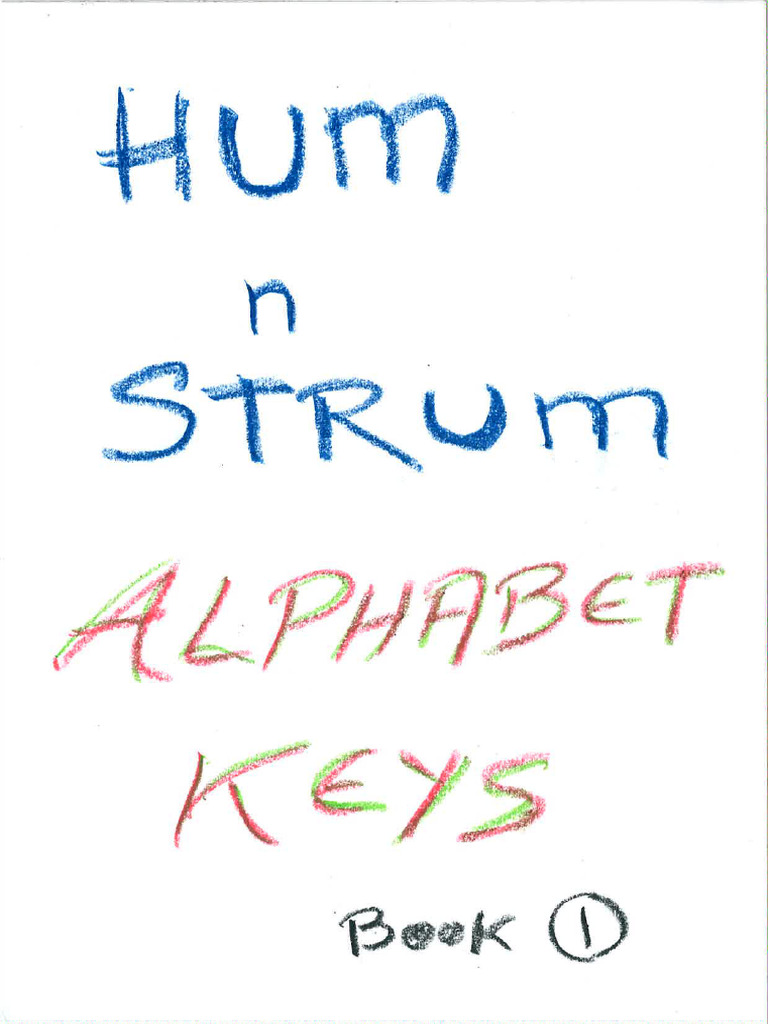 HUM
n
STRUM
ALPHABET
KEYS
Book 1